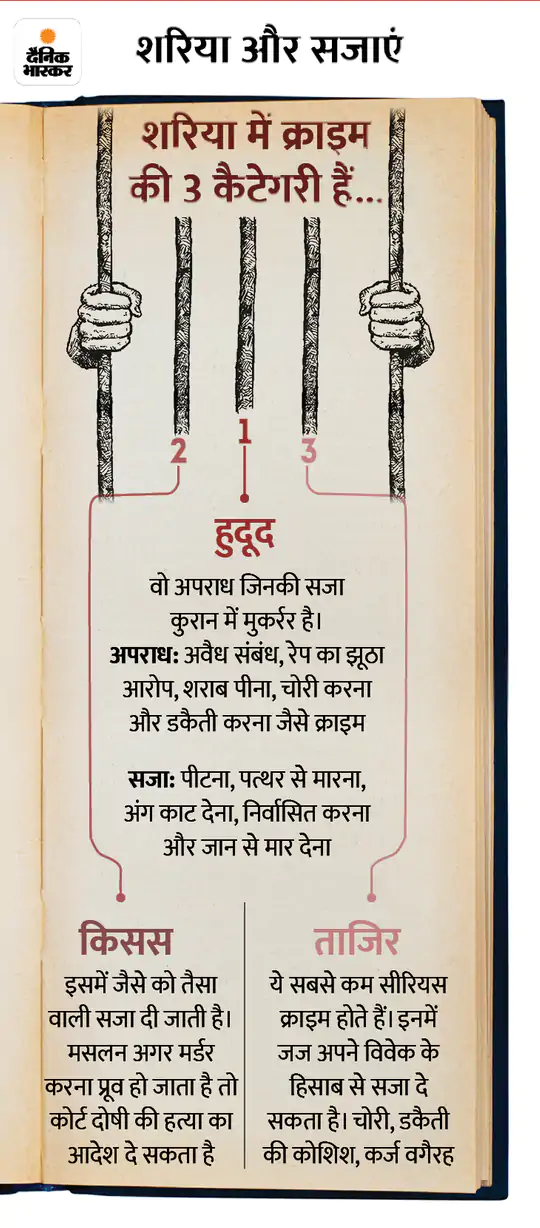 दैनिक
भास्कर
शरिया और सजाएं
शरिया में क्राइम
की 3 कैटेगरी हैं...
2
1
3
हुदूद
वो अपराध जिनकी सजा
कुरान में मुकर्रर है।
अपराध: अवैध संबंध, रेप का झूठा
आरोप, शराब पीना, चोरी करना
और डकैती करना जैसे क्राइम
सजा: पीटना, पत्थर से मारना,
अंग काट देना, निर्वासित करना
और जान से मार देना
किसस
इसमें जैसे को तैसा
वाली सजा दी जाती है।
मसलन अगर मर्डर
करना प्रूव हो जाता है तो
कोर्ट दोषी की हत्या का
आदेश दे सकता है
ताजिर
ये सबसे कम सीरियस
क्राइम होते हैं। इनमें
जज अपने विवेक के
हिसाब से सजा दे
सकता है। चोरी, डकैती
की कोशिश, कर्ज वगैरह